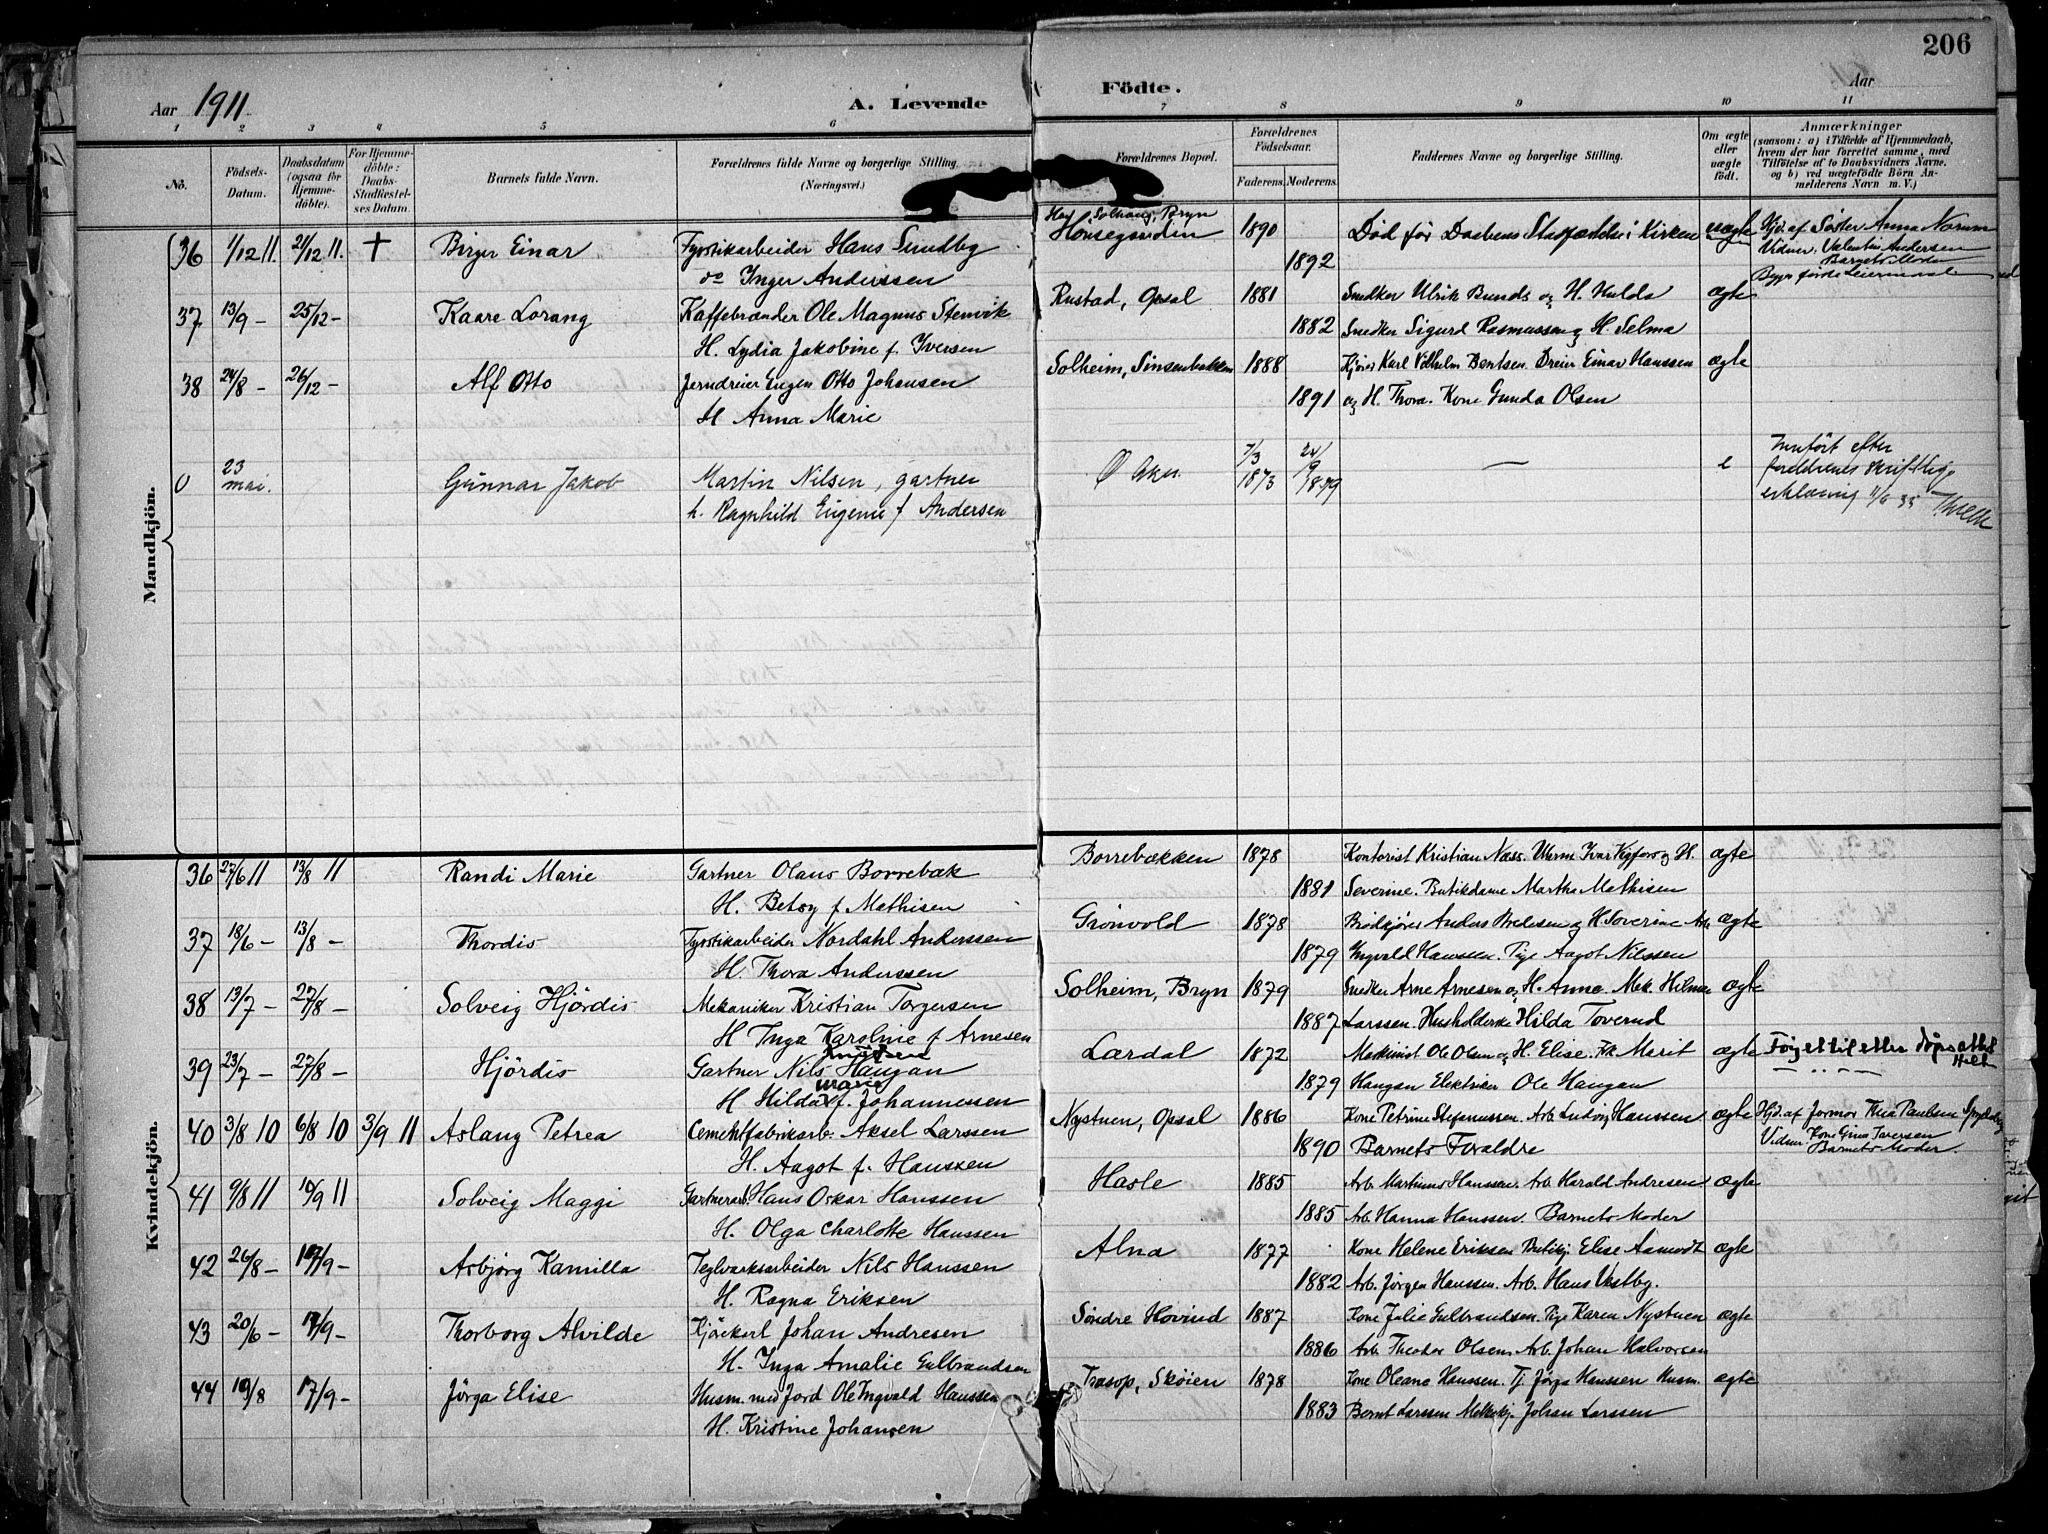 206
Aar 1911
A. Levende
Födte.
Aar
1 2 3 4 5 6 7 8 9 10 11
No.
Födsels-Datum.
Daabsdatum (ogsaa for Hjemme-döbte).
For Hjemme-döbte: Daabs-Stadfæstel-ses Datum.
Barnets fulde Navn.
Forældrenes fulde Navne og borgerlige Stilling. (Næringsvei.)
Forældrenes Bopæl.
Forældrenes Födselsaar.
Faderens. Moderens.
Faddernes Navne og borgerlige Stilling.
Om ægte eller uægte födt.
Anmærkninger
(saasom: a) i Tilfælde af Hjemmedaab, hvem der har forrettet samme, med Tilföielse af to Daabsvidners Navne. og b) ved uægtefödte Börn An-melderens Navn m. V.)
Mandkjön.
36 1/12 11. 21/12 11. † Birger Einar Fyrstikarbeider Hans Sundby Solhaug, Bryn 1890 Död för Daabens Stadfæstelse i Kirken uægte Hjd. af Söster Anna Norum
Inger Anderssen 1892 Vidner: Valentin Andersen
Barnets Moder
37 13/9 - 25/12 - Kaare Lorang Kaffebrænder Ole Magnus Stenvik Rustad, Opsal 1881 Snedker Ulrik Bunds og H. Hulda ægte
H. Lydia Jakobine f. Iversen 1882 Snedker Sigurd Rasmussen og H. Selma
38 24/8 - 26/12 - Alf Otto Jerndreier Eugen Otto Johansen Solheim, Sinsenbakken 1888 Kjörer Karl Vilhelm Berntsen. Dreier Einar Hanssen ægte
H Anna Marie 1891 og H. Thora. Kone Gunda Olsen
0 23 mai. Gunnar Jakob Martin Nilsen, gartner Ø Aker. 7/3 1873 24/9 1879 — e Innført efter
h. Ragnhild Eugenie f Andersen foreldrenes skriftlige
erklæring 11/6 35
Kvindekjön.
36 27/6 11 13/8 11 Randi Marie Gartner Olaus Borrebæk Borrebækken 1878 Kontorist Kristian Næss. Uhrm Ivar Vigfoss og H. ægte
H. Betsy f Mathisen 1881 Severine. Butikdame Martha Mathisen
37 18/6 - 13/8 - Thordis Fyrstikarbeider Nordahl Anderssen Grönvold 1878 Brödkjörer Anders Bredesen og H Severine Arb ægte
H. Thora Anderssen 1879 Ingvald Hanssen. Pige Aagot Nilssen
38 13/7 - 27/8 - Solveig Hjördis Mekaniker Kristian Torgersen Solheim, Bryn 1879 Snedker Arne Arnesen og H. Anna. Mek. Hilmar ægte
H Inga Karoline f Arnesen 1887 Larssen. Husholderske Hilda Toverud
39 23/7 - 27/8 - Hjördis Gartner Nils Knudsen Haugan Lærdal 1872 Maskinist Ole Olsen og H. Elise. Frk Marit ægte Föyet til etter döpsattest
H Hilda Marie f. Johannessen 1879 Haugan Elektriker Ole Haugan
40 3/8 10 6/8 10 3/9 11 Aslaug Petrea Cementfabrikarb. Aksel Larssen Nystuen, Opsal 1886 Kone Petrine Stefanussen. Arb. Ludvig Hanssen ægte Hjd. af Jormor Thea Paulsen
H. Aagot f. Hanssen 1890 Barnets Foraldre Vidner: Kone Gina Iversen
Barnets Moder.
41 9/8 11 10/9 11 Solveig Maggi Gartnerarb. Hans Oskar Hanssen Hasle 1885 Arb. Martinus Hanssen. Arb. Harald Andresen ægte
H. Olga Charlotte Hanssen 1885 Arb. Hanna Hanssen. Barnets Moder
42 26/8 - 17/9 - Asbjörg Kamilla Teglværksarbeider Nils Hanssen Alna 1877 Kone Helene Eriksen Elise Aamodt ægte
H. Ragna Eriksen 1882 Arb. Jörgen Hanssen. Arb. Hans Vestby.
43 20/6 - 17/9 - Thorborg Alvilde Johan Andresen Söndre Hovind 1887 Kone Julie Gulbrandsen. Pige Karen Nystuen ægte
H. Inga Amalie Gulbrandsen 1886 Arb. Theodor Olsen. Arb. Johan Halvorsen
44 10/8 17/9 - Jörga Elise Husm. med Jord Ole Ingvald Hanssen Trasop, Sköien 1878 Kone Oleane Hanssen. Tj. Jörga Hanssen Husm. ægte
H. Kristine Johansen 1883 Bernt Larssen Melkekj. Johan Larssen